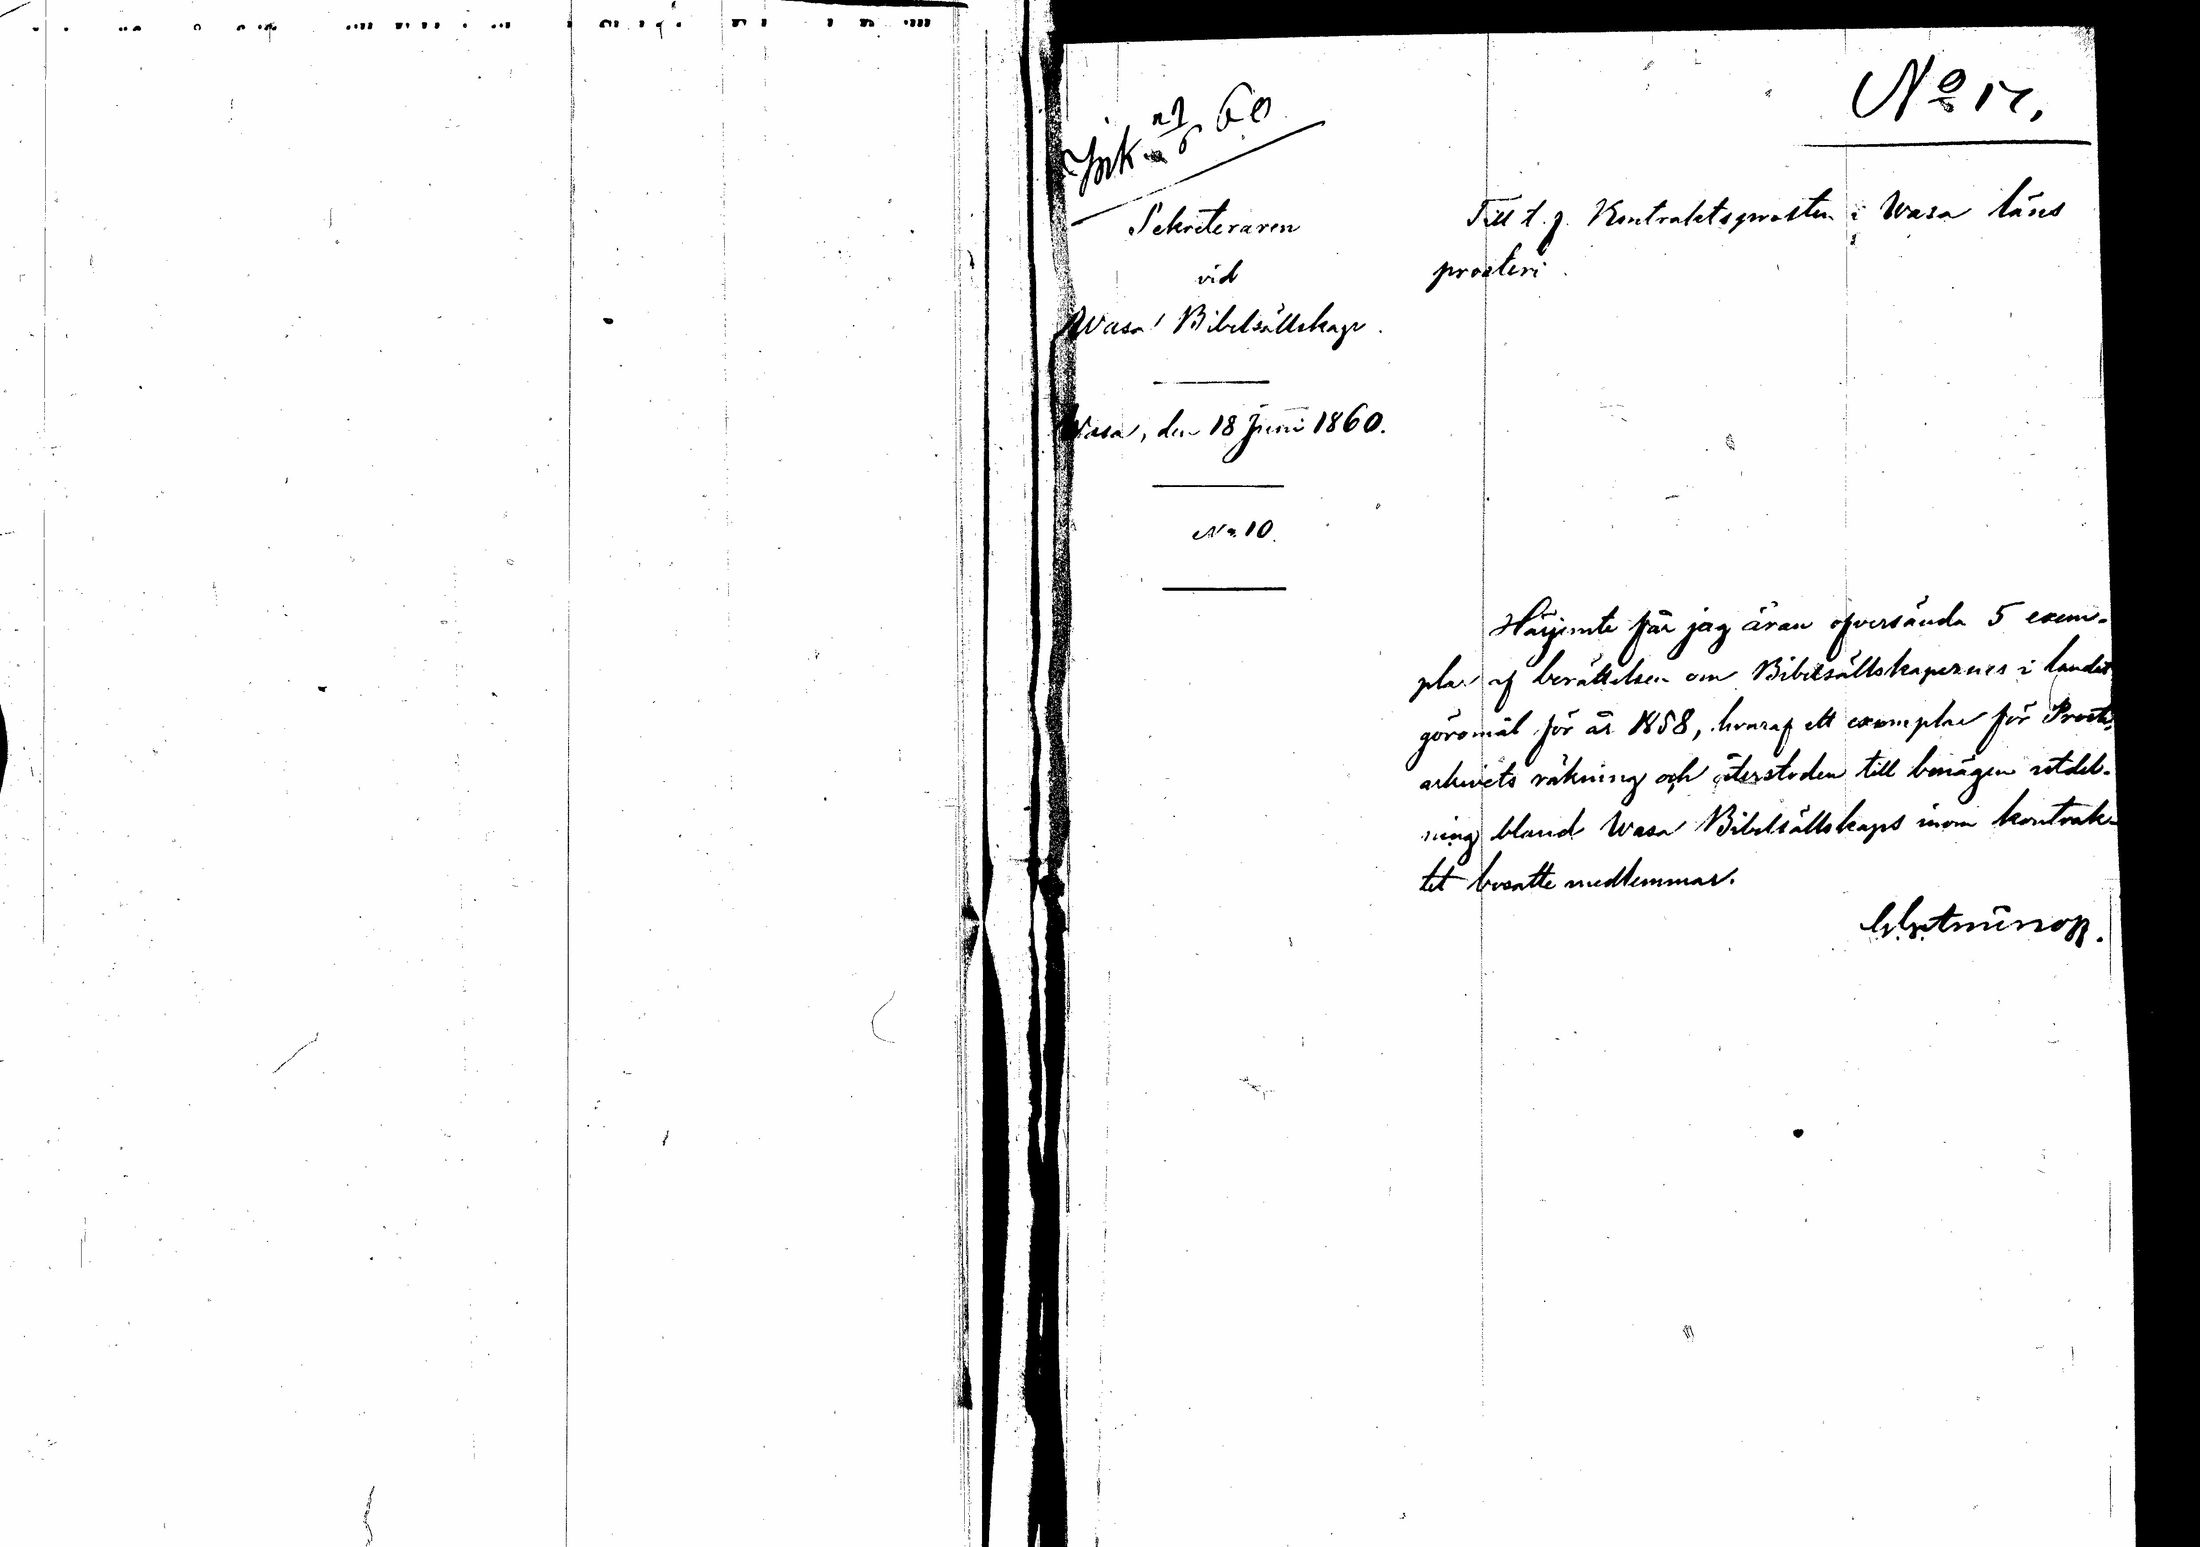 No 17.
Ink. 60
Sekreteraren
vid
Wasa Bibelsällskap.
Wasa, den 18 Juni 1860.
No 10.
Till t. f. Kontraktsprosten i Wasa läns
prosteri.
Härjemte får jag äran öfversända 5 exem-
plar af berättelsen om Bibelsällskapernes i landet
göromål för år 1858, hvaraf ett exemplar för Prost-
arkivets räkning och återstoden till benägen utdel-
ning bland Wasa Bibelsällskaps inom kontrak-
tet bosatte medlemmar.